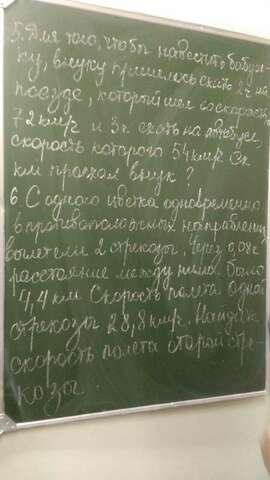 5. Для того, чтобы навестить бабуш-
ку, внуку пришлось ехать 2ч на
поезде, который шел со скоростью
72 км/ч и 3ч ехать на автобусе,
скорость которого 54 км/ч Ск
км проехал внук?
6 С одного цветка одновременно
в противоположных направлени
вылетели 2 стрекозы. Через 0,08ч
расстояние между ними было
4,4 км Скорость полета одной
стрекозы 28,8 км/ч. Найдите
скорость полета второй стре-
козы